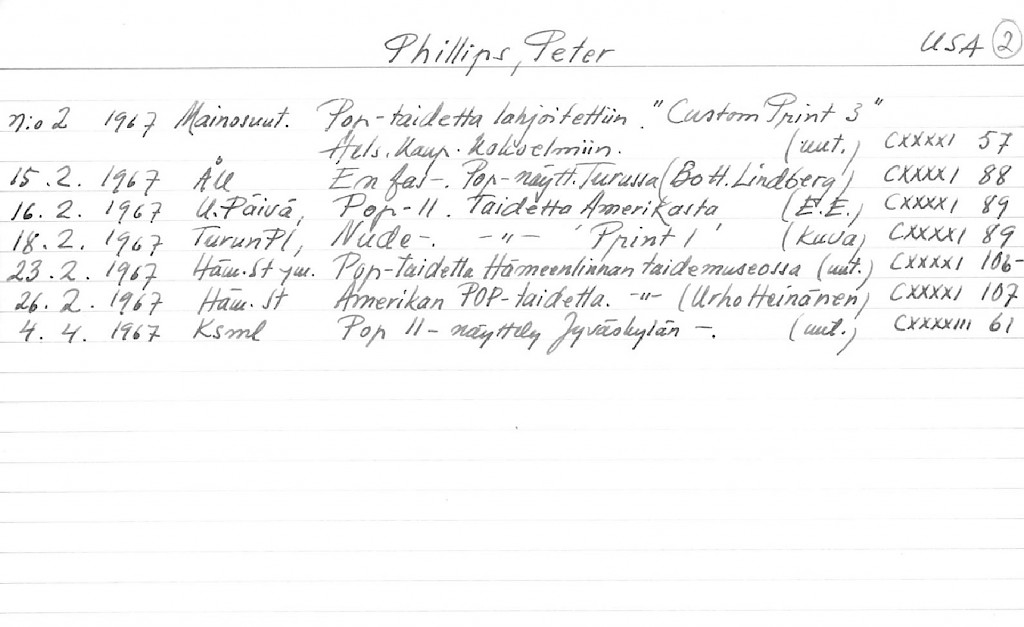 Phillips, Peter USA 2
n:o 2 1967 Mainosuut. Pop-taidetta lahjoitettiin. "Custom Print 3"
Hels. Kaup. kokoelmiin. (uut.) CXXXXI 57
15.2. 1967 ÅU En fas-. Pop-näytt. Turussa (Bo H. Lindberg) CXXXXI 88
16.2. 1967 U. Päivä, Pop-II. Taidetta Amerikasta (E.E.) CXXXXI 89
18.2. 1967 TurunPl, Nude-. -"- 'Print 1' (kuva) CXXXXI 89
23.2. 1967 Häm. St ym. Pop-taidetta Hämeenlinnan taidemuseossa (uut.) CXXXXI 106-
26.2. 1967 Häm. St Amerikan POP-taidetta. -"- (Urho Heinänen) CXXXXI 107
4.4. 1967 Ksml Pop II-näyttely Jyväskylän -. (uut.) CXXXXIII 61